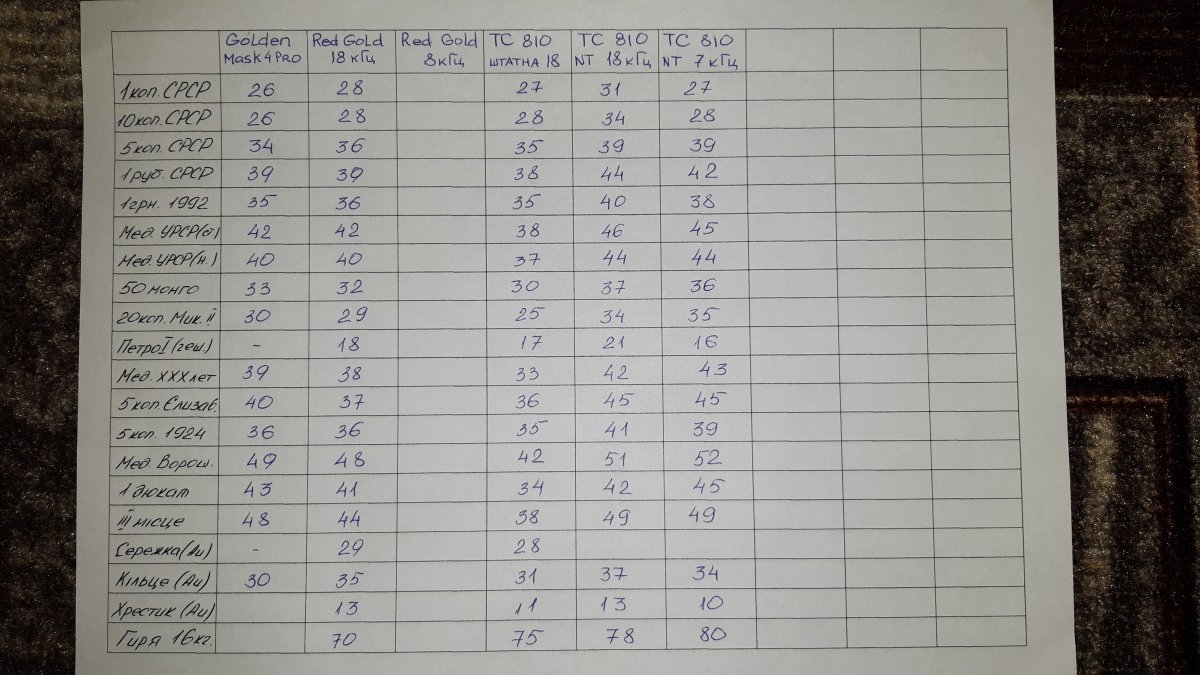 Golden Mask 4 PRO Red Gold 18 кГц Red Gold 8 кГц ТС 810 штатна 18 ТС 810 NT 18 кГц ТС 810 NT 7 кГц
1 коп. СРСР 26 28 27 31 27
10 коп. СРСР 26 28 28 34 28
5 коп. СРСР 34 36 35 39 39
1 руб. СРСР 39 39 38 44 42
1 грн. 1992 35 36 35 40 38
Мед. УРСР(ст.) 42 42 38 46 45
Мед. УРСР(н.) 40 40 37 44 44
50 монго 33 32 30 37 36
20 коп. Мик. II 30 29 25 34 35
Петро I (чеш.) - 18 17 21 16
Мед. XXX лет 39 38 33 42 43
5 коп. Єлизав. 40 37 36 45 45
5 коп. 1924 36 36 35 41 39
Мед. Ворош. 49 48 42 51 52
1 дюкат 43 41 34 42 45
III місце 48 44 38 49 49
Сережка (Au) - 29 28
Кільце (Au) 30 35 31 37 34
Хрестик (Au) 13 11 13 10
Гиря 16 кг. 70 75 78 80